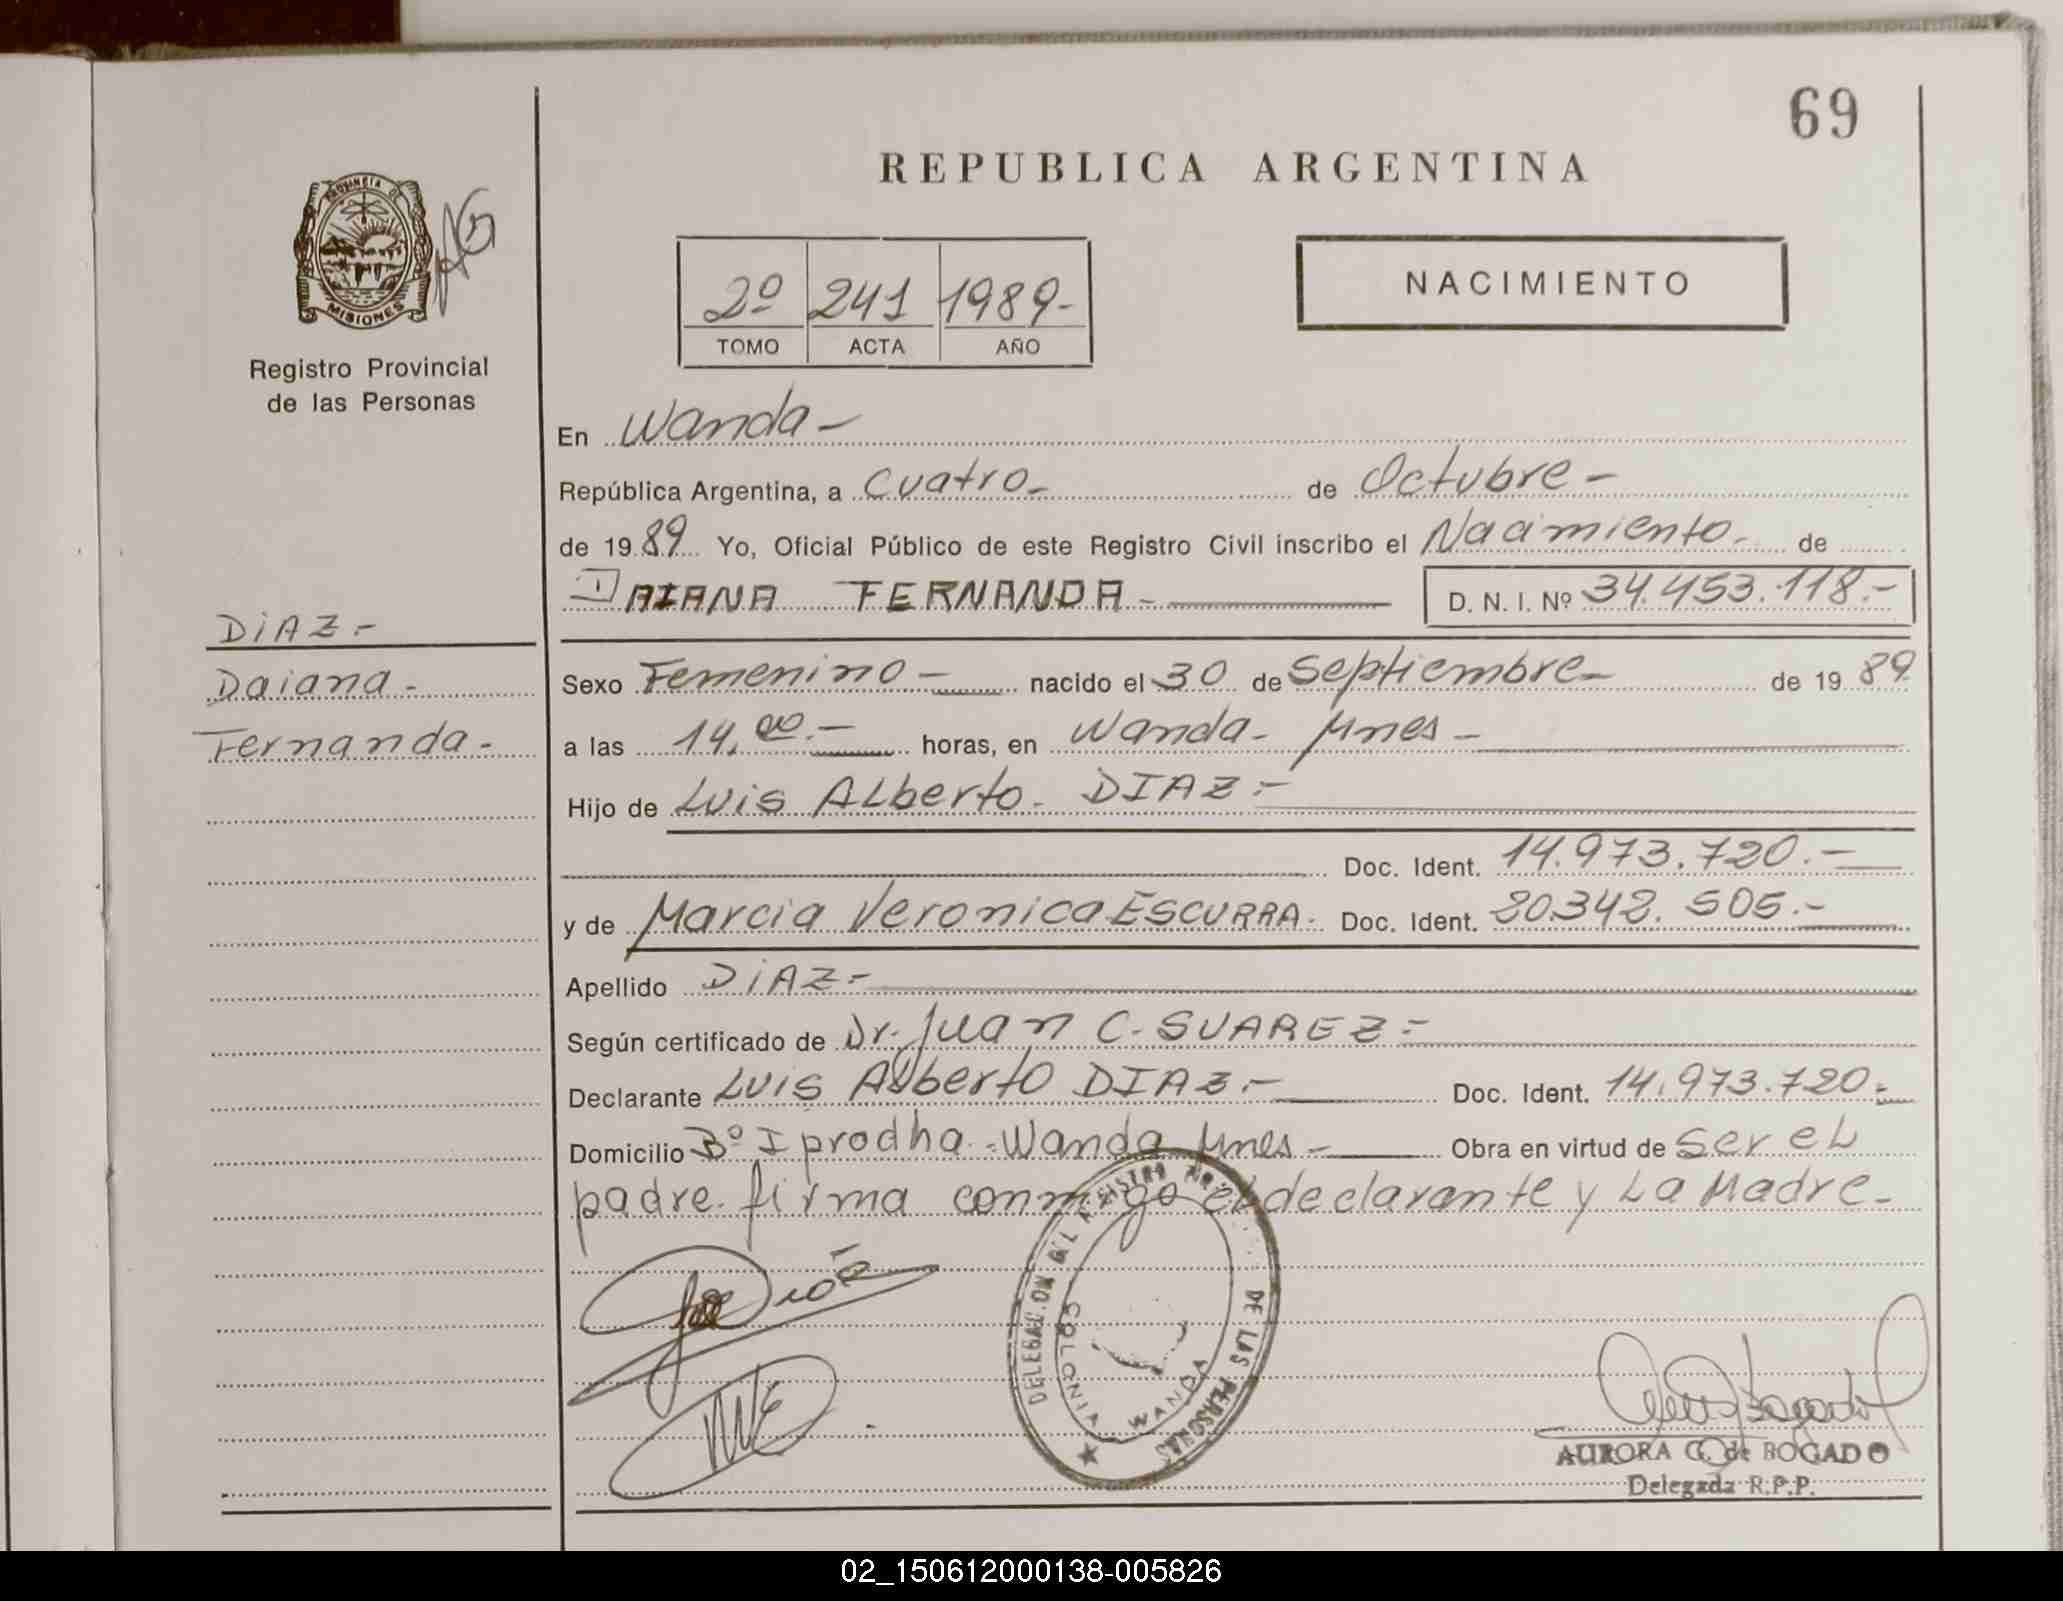 69
REPUBLICA ARGENTINA
PROVINCIA DE
MISIONES
Registro Provincial
de las Personas
2º 241 1989-
TOMO ACTA AÑO
NACIMIENTO
En Wanda-
República Argentina, a Cuatro- de Octubre-
de 1989 Yo, Oficial Público de este Registro Civil inscribo el Nacimiento- de
DAIANA FERNANDA- D. N. I. Nº 34.453.118.-
DiAZ.-
Daiana-
Fernanda-
Sexo Femenino- nacido el 30 de Septiembre- de 1989
a las 14,00.- horas, en Wanda- Mnes-
Hijo de Luis ALberto- DIAZ.-
Doc. Ident. 14.973.720.-
y de Marcia Veronica ESCURRA- Doc. Ident. 20.342.505.-
Apellido DiAZ.-
Según certificado de Dr. Juan C. SUAREZ.-
Declarante LUIS Alberto DIAZ.- Doc. Ident. 14.973.720.-
Domicilio Bº Iprodha-Wanda Mnes- Obra en virtud de ser eL
padre. firma conmigo el declarante y La Madre-
DELEGACION DEL REGISTRO DE LAS PERSONAS
COLONIA WANDA
AURORA G. de BOGADO
Delegada R.P.P.
02_150612000138-005826